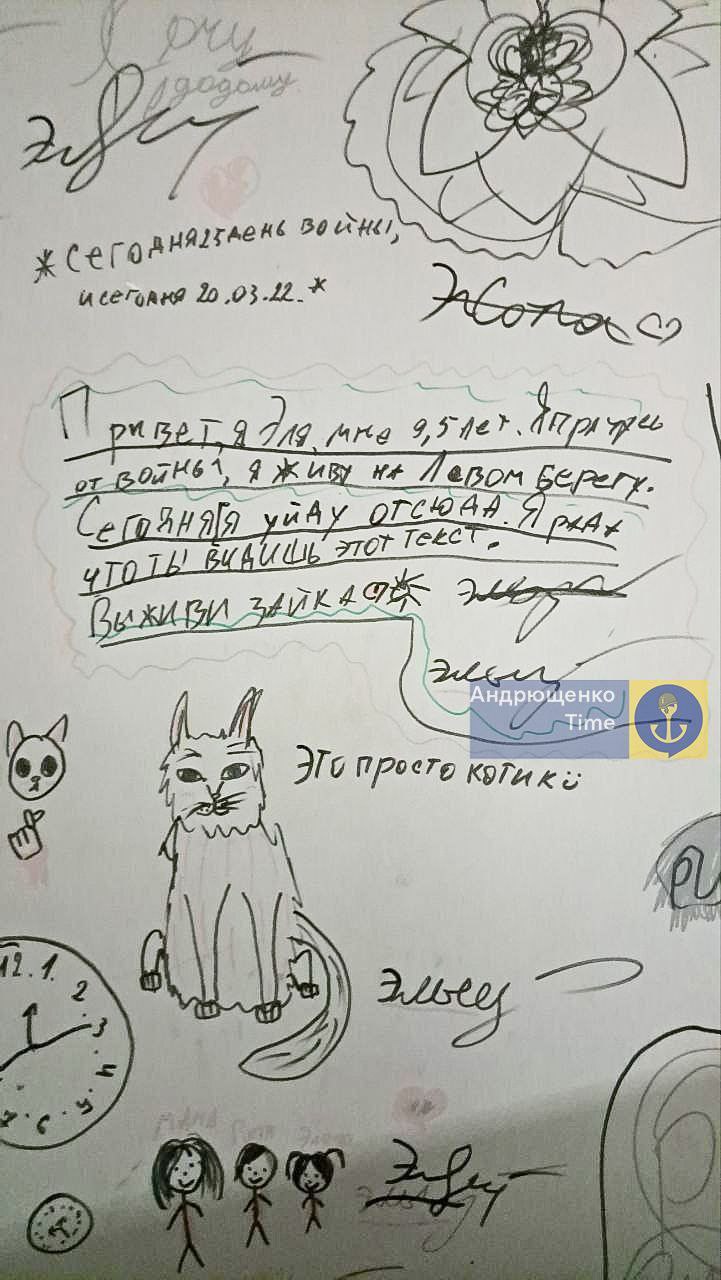 Я хочу
додому
*Сегодня 25 день войны,
и сегодня 20.03.22.*
Жопа
Привет, я Эля, мне 9,5 лет. Я прячусь
от войны, я живу на Левом берегу.
Сегодня я уйду отсюда. Я рада
что ты видишь этот текст.
Выживи зайка
Андрющенко
Time
Это просто котик
12. 1.
2
3
4
5
6
7
мама